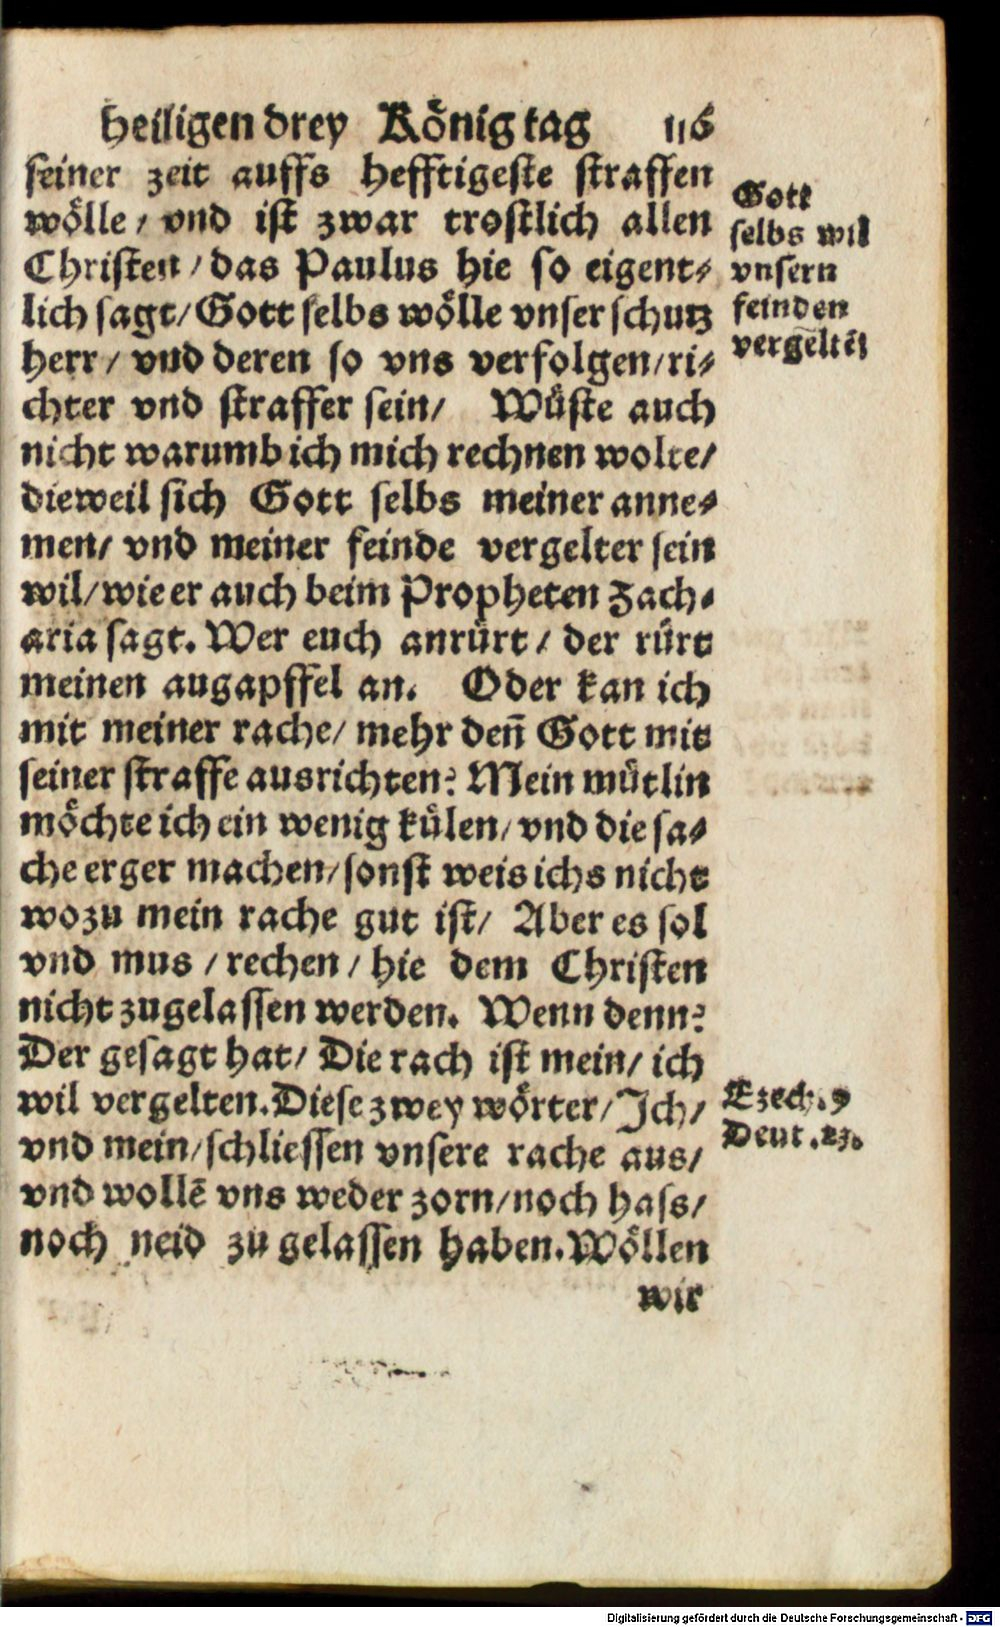 heiligen drey König tag 116
seiner zeit auffs hefftigeste straffen
wölle / vnd ist zwar trostlich allen
Christen / das Paulus hie so eigent⸗
lich sagt / Gott selbs wölle vnser schutz
herr / vnd deren so vns verfolgen / ri⸗
chter vnd straffer sein / Wüste auch
nicht warumb ich mich rechnen wolte /
dieweil sich Gott selbs meiner anne⸗
men / vnd meiner feinde vergelter sein
wil / wie er auch beim Propheten Zach⸗
aria sagt. Wer euch anrürt / der rürt
meinen augapffel an. Oder kan ich
mit meiner rache / mehr deñ Gott mit
seiner straffe ausrichten? Mein mütlin
möchte ich ein wenig külen / vnd die sa⸗
che erger machen / sonst weis ichs nicht
wozu mein rache gut ist / Aber es sol
vnd mus / rechen / hie dem Christen
nicht zugelassen werden. Wenn denn?
Der gesagt hat / Die rach ist mein / ich
wil vergelten. Diese zwey wörter / Ich /
vnd mein / schliessen vnsere rache aus /
vnd wollē vns weder zorn / noch hass /
noch neid zu gelassen haben. Wöllen
wir
Gott
selbs wil
vnsern
feinden
vergeltē
Ezech. 9
Deut. 23.
Digitalisierung gefördert durch die Deutsche Forschungsgemeinschaft - DFG